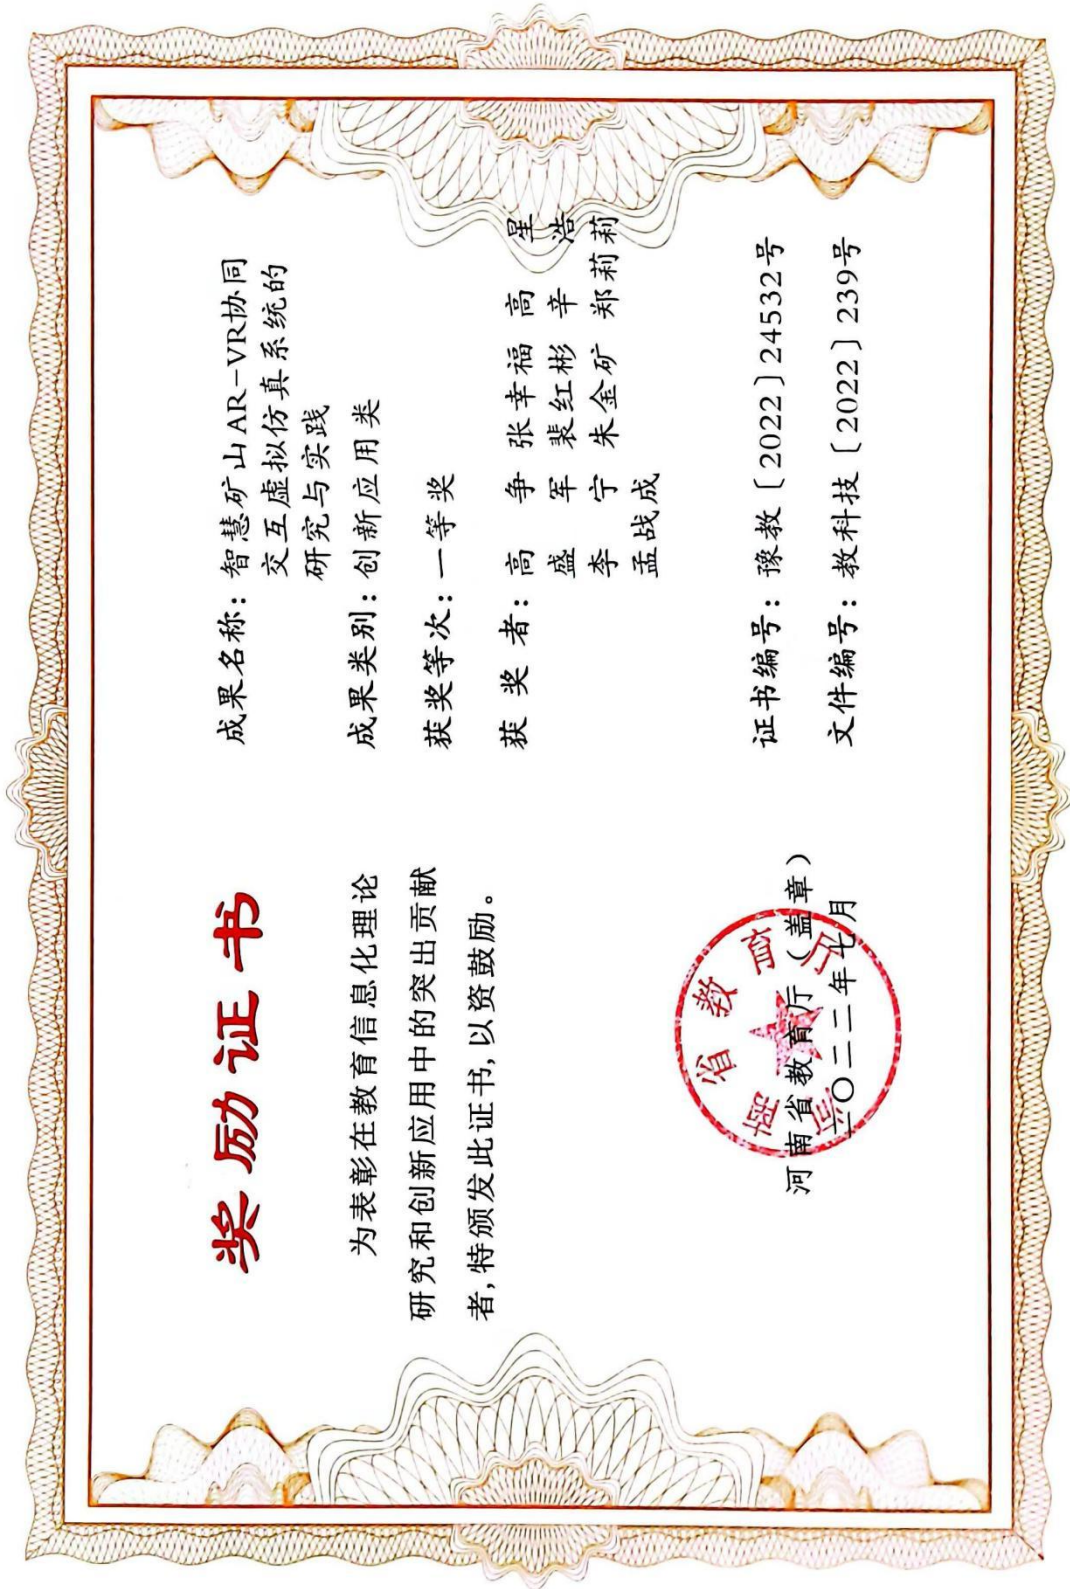 奖励证书
为表彰在教育信息化理论
研究和创新应用中的突出贡献
者,特颁发此证书,以资鼓励。
河南省教育厅
河南省教育厅(盖章)
二〇二二年七月
成果名称:智慧矿山AR-VR协同
交互虚拟仿真系统的
研究与实践
成果类别:创新应用类
获奖等次:一等奖
获奖者:高争 张幸福 高星
盛军 裴红彬 辛浩
李宁 朱金矿 郑莉莉
孟战成
证书编号:豫教〔2022〕24532号
文件编号:教科技〔2022〕239号